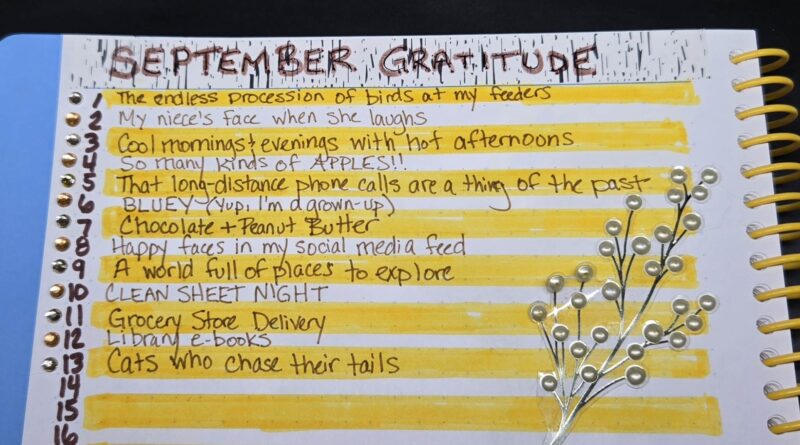 SEPTEMBER GRATITUDE
1 The endless procession of birds at my feeders
2 My niece's face when she laughs
3 Cool mornings & evenings with hot afternoons
4 So many kinds of APPLES!!
5 That long-distance phone calls are a thing of the past
6 BLUEY (Yup, I'm a grown-up)
7 Chocolate + Peanut Butter
8 Happy faces in my social media feed
9 A world full of places to explore
10 CLEAN SHEET NIGHT
11 Grocery Store Delivery
12 Library e-books
13 Cats who chase their tails
14
15
16